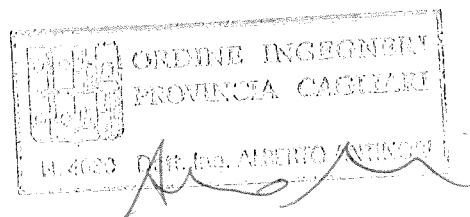 ORDINE INGEGNERI
PROVINCIA CAGLIARI
Dott. Ing. ALBERTO